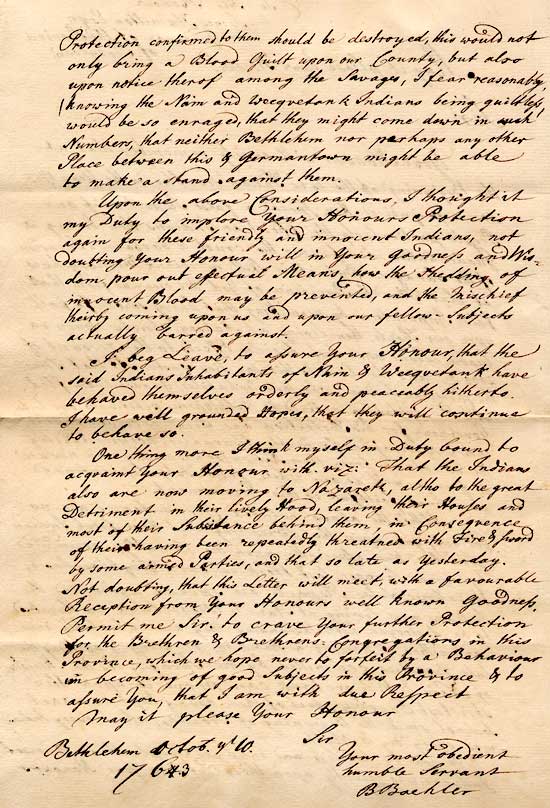 Protection confirmed to them should be destroyed, this would not
only bring a Blood Guilt upon our County, but also
upon notice therof among the Savages, I fear reasonably,
(knowing the Nain and Wecqvetank Indians being guiltless)
would be so enraged, that they might come down in such
Numbers, that neither Bethlehem nor perhaps any other
Place between this & Germantown might be able
to make a stand against them.
Upon the above Considerations, I thought it
my Duty to implore Your Honours Protection
again for these friendly and innocent Indians, not
doubting Your Honour will in Your Goodness and Wis-
dom pour out effectuel Means, how the Shedding of
innocent Blood may be prevented, and the Mischief
theirby coming upon us and upon our fellow-Subjects
actually barred against.
I beg Leave, to assure Your Honour, that the
said Indians Inhabitants of Nain & Wecqvetank have
behaved themselves orderly and peaceably hitherto.
I have well grounded Hopes, that they will continue
to behave so.
One thing more I think myself in Duty bound to
acqvaint Your Honour with viz: That the Indians
also are now moving to Nazareth, altho to the great
Detriment in their lively Hood, leaving their Houses and
most of their Substance behind them, in Conseqvence
of their having been repeatedly threatned with Fire & Sword
by some armed Parties, and that so late as Yesterday.
Not doubting, that this Letter will meet with a favourable
Reception from Your Honours well known Goodness.
Permit me Sir: to crave Your further Protection
for the Brethren & Brethrens-Congregations in this
Province, which we hope never to forfeit by a Behaviour
un becoming of good Subjects in this Province & to
assure You, that I am with due Respect
May it please Your Honour
Sir
Bethlehem Octob. 10.
1763
Your most obedient
humble Servant
B Boehler